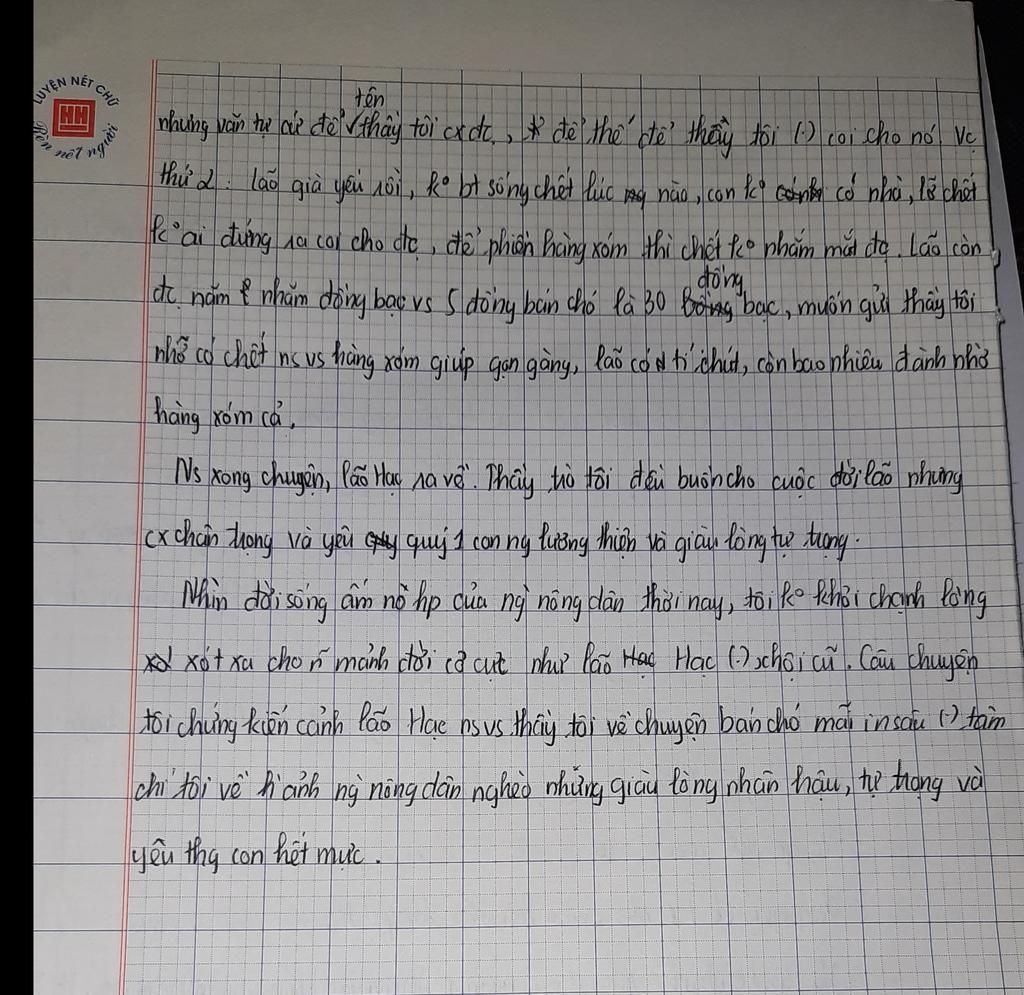 LUYỆN NÉT CHỮ
HH
Rèn nết người
tên
nhưng văn tự cứ để √ thầy tôi cx đc, để thế để thầy tôi (.) coi cho nó. Vc
thứ 2: lão già yếu rồi, ko bt sống chết lúc nào, con ko có nhà, lỡ chết
ko ai đứng ra coi cho đc, để phiền hàng xóm thì chết ko nhắm mắt đc. Lão còn
đc năm nhăm đồng bạc vs 5 đồng bán chó là 30 đồng bạc, muốn gửi thầy tôi
nhỡ có chết ns vs hàng xóm giúp gọn gàng, lão có tí chút, còn bao nhiêu đành nhờ
hàng xóm cả.
Ns xong chuyện, lão Hạc ra về. Thầy trò tôi đều buồn cho cuộc đời lão nhưng
cx chân trọng và yêu quý 1 con ng lương thiện và giàu lòng tự trọng.
Nhìn đời sống ấm nô hp của ng` nông dân thời nay, tôi ko khỏi chạnh lòng
xót xa cho ~ mảnh đời cơ cực như lão Hạc (.) xã hội cũ. Câu chuyện
tôi chứng kiến cảnh lão Hạc ns vs thầy tôi về chuyện bán chó mãi in sâu (.) tâm
chí tôi về h` ảnh ng` nông dân nghèo nhưng giàu lòng nhân hậu, tự trọng và
yêu thg con hết mực.